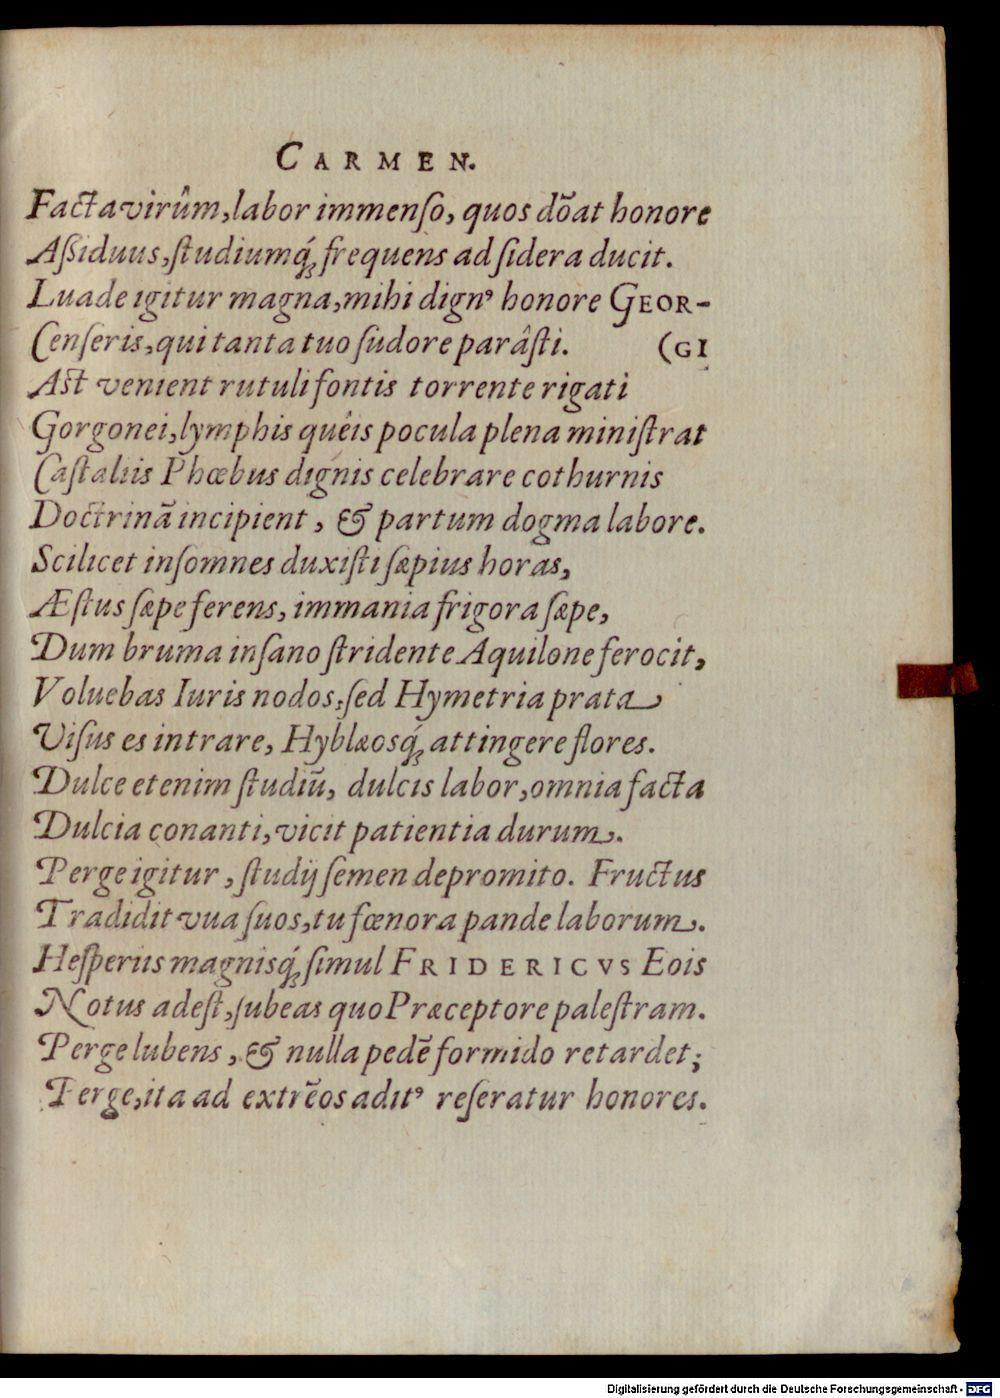 CARMEN.
Facta virûm, labor immenſo, quos dõat honore
Aſſiduus, ſtudiumq́ꝫ frequens ad ſidera ducit.
Luade igitur magna, mihi dignꝰ honore GEOR-
Cenſeris, qui tanta tuo ſudore parâſti. (GI
Aſt venient rutuli fontis torrente rigati
Gorgonei, lymphis quêis pocula plena miniſtrat
Caſtaliis Phœbus dignis celebrare cothurnis
Doctrinã incipient, & partum dogma labore.
Scilicet inſomnes duxiſti ſæpius horas,
Æſtus ſæpe ferens, immania frigora ſæpe,
Dum bruma inſano ſtridente Aquilone ferocit,
Voluebas Iuris nodos, ſed Hymetria prata
Viſus es intrare, Hyblæosq́ꝫ attingere flores.
Dulce etenim ſtudiũ, dulcis labor, omnia facta
Dulcia conanti, vicit patientia durum.
Perge igitur, ſtudij ſemen depromito. Fructus
Tradidit vua ſuos, tu fœnora pande laborum.
Heſperiis magnisq́ꝫ ſimul FRIDERICVS Eois
Notus adeſt, ſubeas quo Præceptore paleſtram.
Perge lubens, & nulla pedẽ formido retardet;
Perge, ita ad extrẽos aditꝰ reſeratur honores.
Digitalisierung gefördert durch die Deutsche Forschungsgemeinschaft - DFG